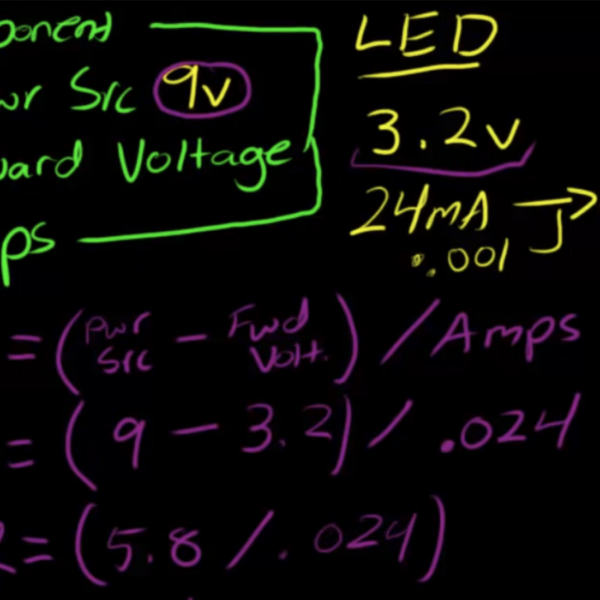 ponent
wr Src 9v
ward Voltage
ps
LED
3.2v
24mA
.001
= (Pwr Src - Fwd Volt.) / Amps
= (9 - 3.2) / .024
R = (5.8 / .024)